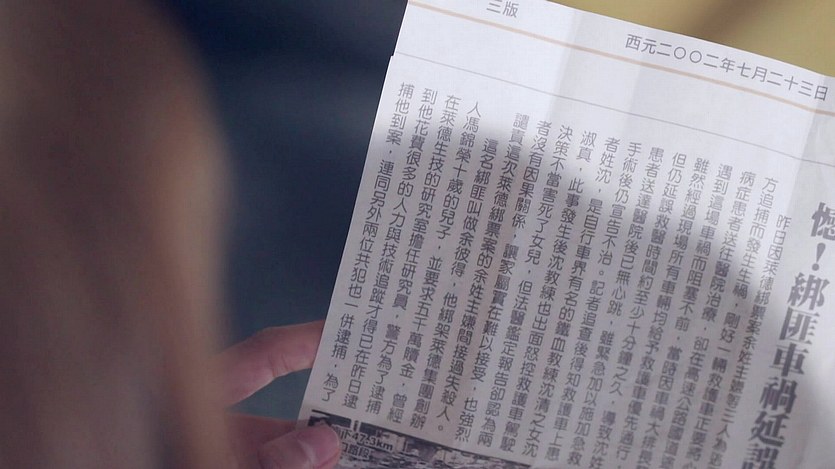 三版
西元二〇〇二年七月二十三日
憾！綁匪車禍延誤
昨日因萊德綁票案余姓主嫌
方追捕而發生車禍，剛好一輛救護車正要將
病症患者送往醫院治療，卻在高速公路
遇到這場車禍而阻塞不前，當時因車禍大排
雖然經過現場所有車輛均給予救護車優先通行
但仍延誤救醫時間約至少十分鐘之久，導致沈
患者送達醫院後已無心跳，雖緊急加以施加急救
手術後仍宣告不治。記者追查後得知救護車上患
者姓沈，是自行車界有名的鐵血教練沈清之女沈
淑真，此事發生後沈教練也出面怒控救護車駕駛
決策不當害死了女兒，但法醫鑑定報告卻認為兩
者沒有因果關係，讓家屬實在難以接受，也強烈
譴責這次萊德綁票案的余姓主嫌間接過失殺人。
這名綁匪叫做余彼得，他綁架萊德集團創辦
人馮錦榮十歲的兒子，並要求五千萬贖金，曾經
在萊德生技的研究室擔任研究員，警方為了逮捕
到他花費很多的人力與技術追蹤才得已在昨日逮
捕他到案，連同另外兩位共犯也一併逮捕，為了
47.3km
路段